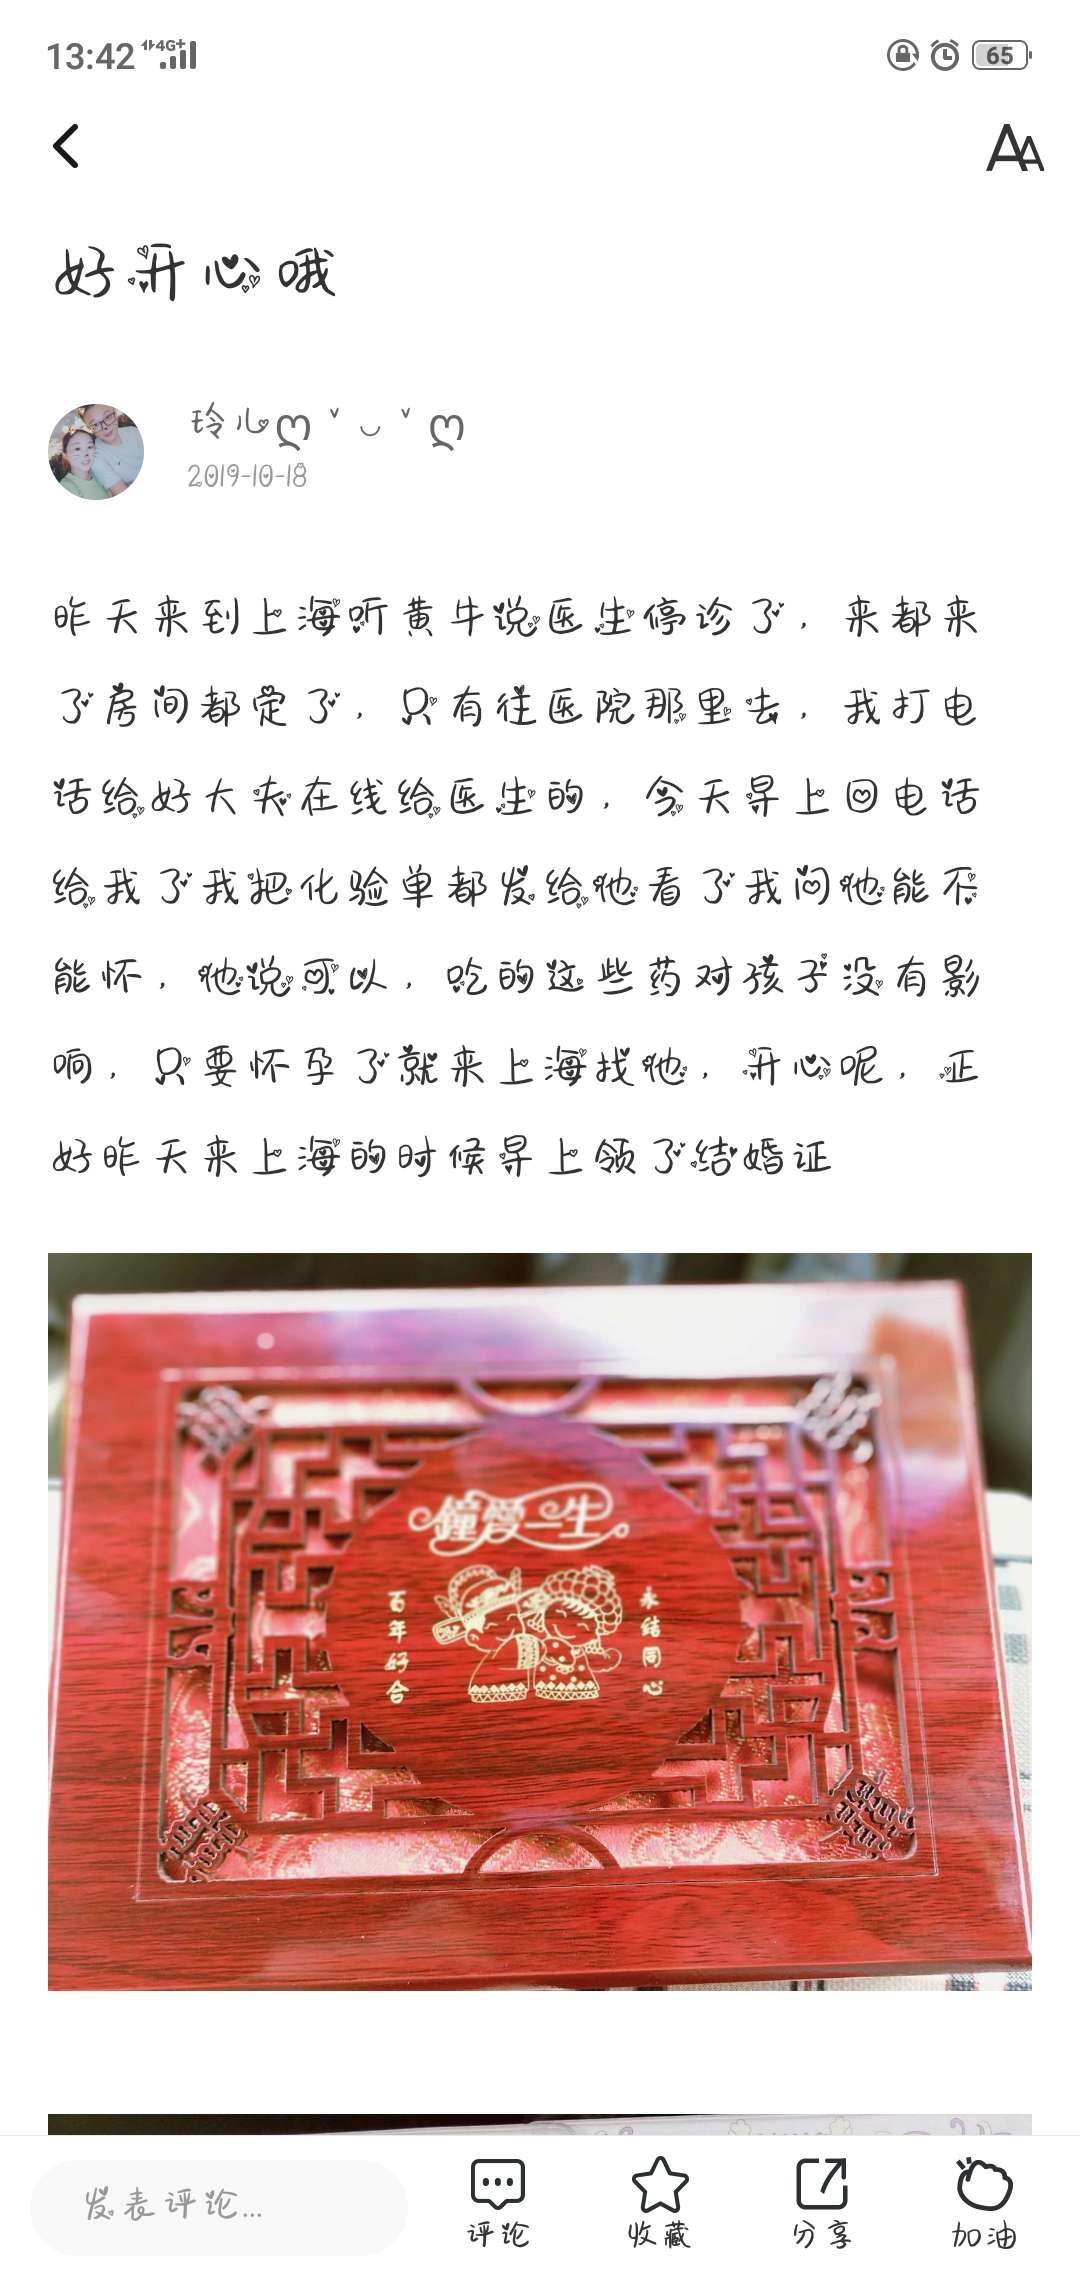 13:42 4G+ 65
好开心哦
玲儿ღ ˇ ◡ ˇ ღ
2019-10-18
昨天来到上海听黄牛说医生停诊了，来都来
了房间都定了，只有往医院那里去，我打电
话给好大夫在线给医生的，今天早上回电话
给我了我把化验单都发给他看了我问他能不
能怀，他说可以，吃的这些药对孩子没有影
响，只要怀孕了就来上海找他，开心呢，正
好昨天来上海的时候早上领了结婚证
鐘愛一生
百年好合
永结同心
发表评论...
评论 收藏 分享 加油